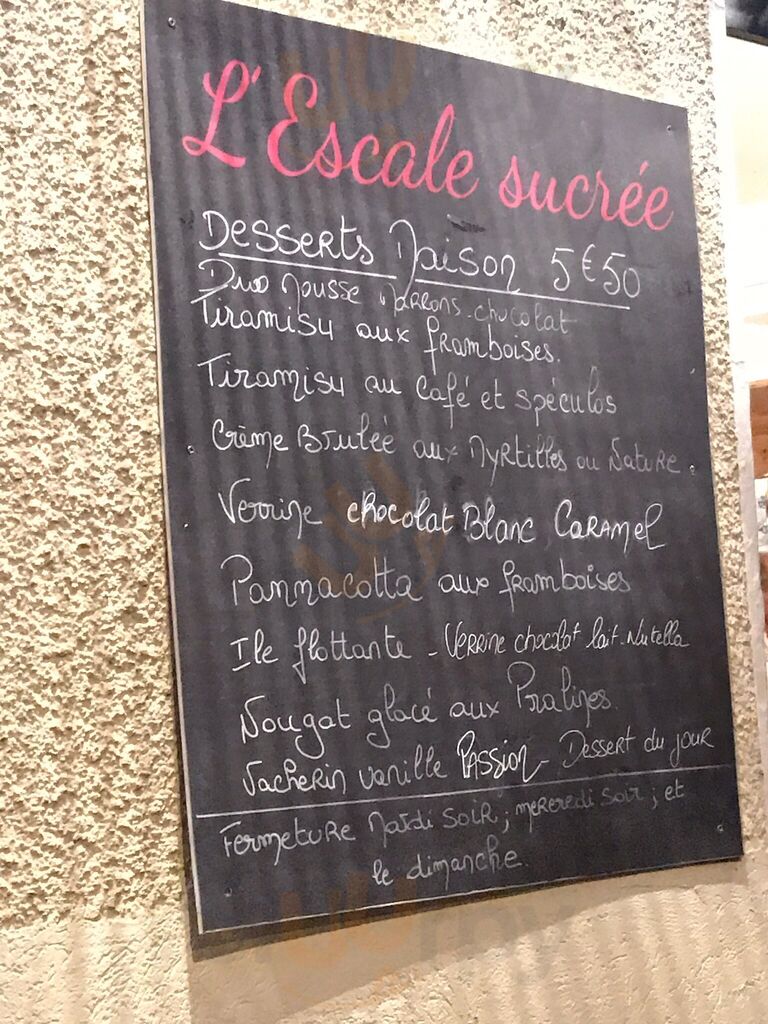 L'Escale sucrée
Desserts Maison 5€50
Duo Mousse Marrons-chocolat
Tiramisu aux framboises.
Tiramisu au café et spéculos
Crème Brulée aux Myrtilles ou Nature
Verrine chocolat Blanc Caramel
Pannacotta aux framboises
Ile flottante - Verrine chocolat lait-Nutella
Nougat glacé aux Pralines
Vacherin vanille Passion - Dessert du jour
Fermeture Mardi soir ; mercredi soir ; et
le dimanche